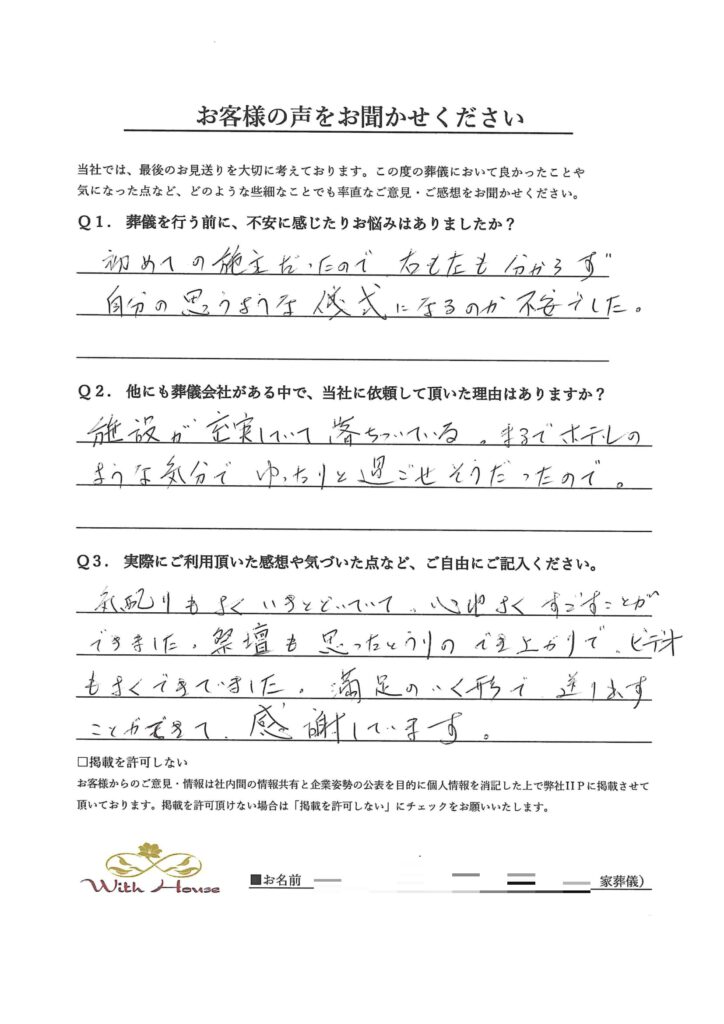 お客様の声をお聞かせください
当社では、最後のお見送りを大切に考えております。この度の葬儀において良かったことや
気になった点など、どのような些細なことでも率直なご意見・ご感想をお聞かせください。
Q1. 葬儀を行う前に、不安に感じたりお悩みはありましたか？
初めての施主だったので、右も左も分からず
自分の思うような儀式になるのか不安でした。
Q2. 他にも葬儀会社がある中で、当社に依頼して頂いた理由はありますか？
施設が充実していて落ちついている。まるでホテルの
ような気分でゆったりと過ごせそうだったので。
Q3. 実際にご利用頂いた感想や気づいた点など、ご自由にご記入ください。
気配りもよくいきとどいていて、心地よくすごすことが
できました。祭壇も思ったとうりのでき上がりで、ビデオ
もよくできていました。満足のいく形で送り出す
ことができて、感謝しています。
□掲載を許可しない
お客様からのご意見・情報は社内間の情報共有と企業姿勢の公表を目的に個人情報を消記した上で弊社HPに掲載させて
頂いております。掲載を許可頂けない場合は「掲載を許可しない」にチェックをお願いいたします。
With House
■お名前 家葬儀）